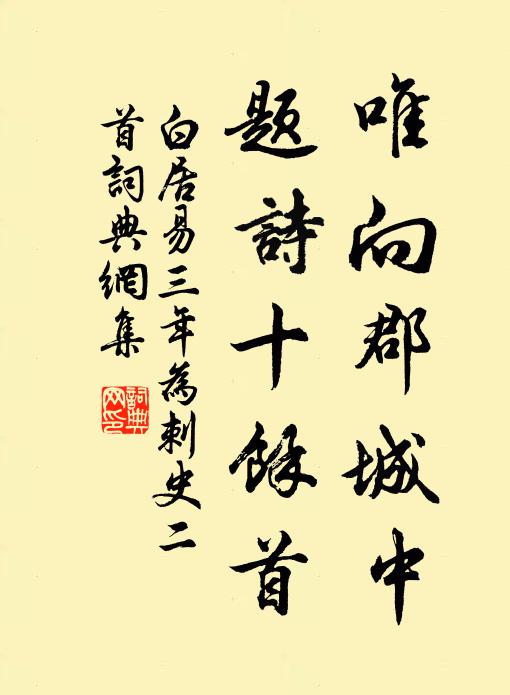 唯向郡城中
題詩十餘首
白居易三年為刺史二
首詞典網集
詞典網印